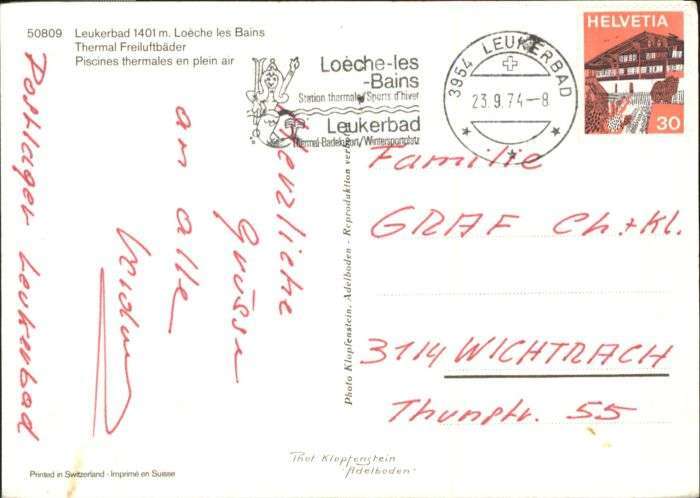 50809 Leukerbad 1401 m. Loèche les Bains
Thermal Freiluftbäder
Piscines thermales en plein air
Loèche-les
-Bains
Station thermale/Sports d'hiver
Leukerbad
Thermal-Badekurort/Wintersportplatz
3954 LEUKERBAD
23.9.74-8
HELVETIA
30
Herzliche
Grüsse
an alle
Postlager Leukerbad
Familie
GRAF Ch.+Kl.
3114 WICHTRACH
Thunstr. 55
Photo Klopfenstein, Adelboden - Reproduktion verboten
Phot Klopfenstein
Adelboden
Printed in Switzerland - Imprimé en Suisse